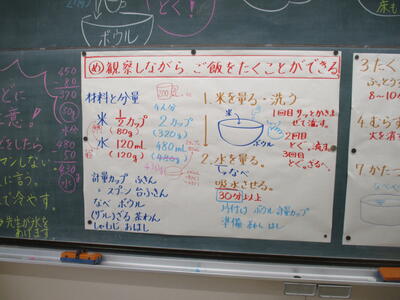 ボウル
とぐ!
め 観察しながら ご飯をたくことができる。
材料と分量
4人分
米 1/2カップ 2カップ
(80g) (320g)
水 120mL 480mL
(120g) (480g)
計量カップ ふきん
スプン 台ふきん
なべ ボウル
(ザル)ざる 茶わん
しゃもじ おはし
200
1. 米を量る・洗う
米
ボウル
1回目 サッとかきま
ぜて流す。
2回目
とぐ。流す。
3回目
とぐ。ざるへ。
2. 水を量る。
なべ
吸水させる。
30分以上
片付け ボウル 計量カップ
準備 茶わん はし
3.たく
ふっとう
8〜10
4.むらす
火を消す
450
80
370
80g
水分
480
50
430
水
意!
をしたら
マンしない。
に言う。
で冷やす。
先生が水を